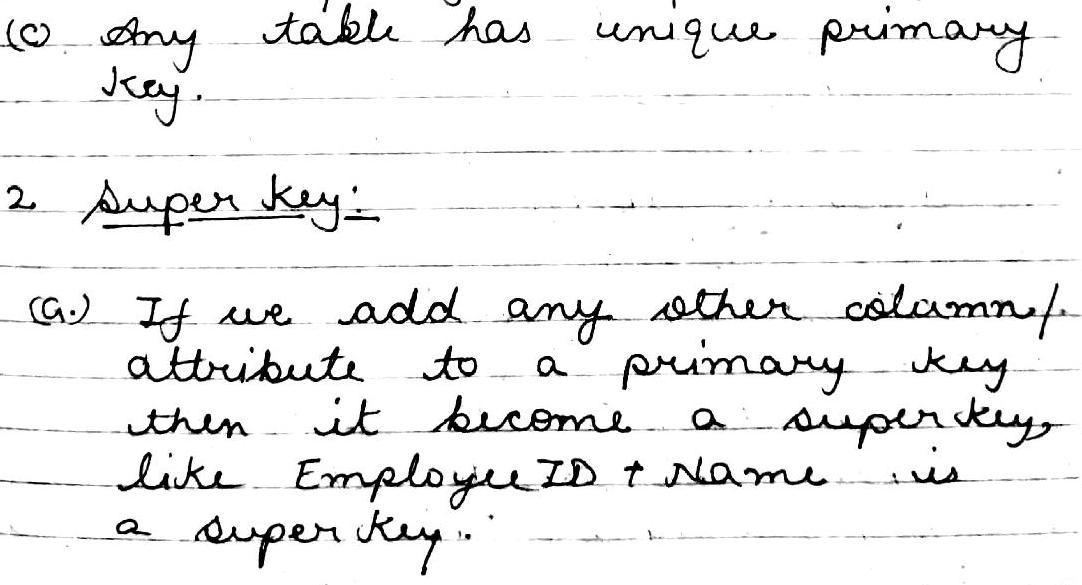 (C) Any table has unique primary
key.
2. Super key:
(a.) If we add any other column/
attribute to a primary key
then it become a super key,
like Employee ID + Name is
a super key.